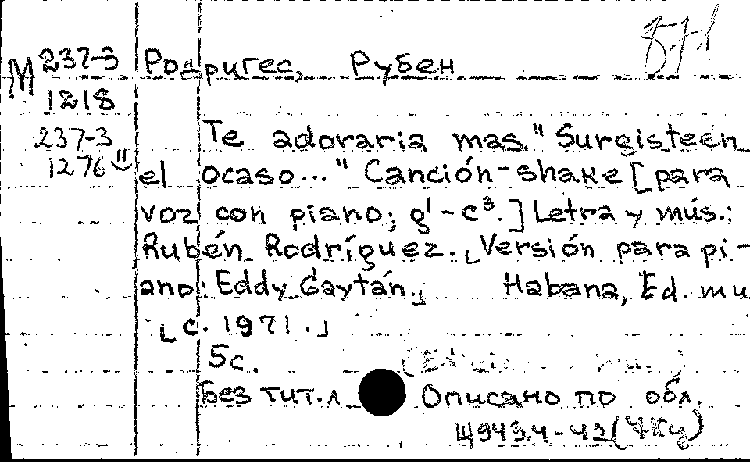 М 237-3 Родригес, Рубен
1218
237-3 Te adoraria mas. "Surgisteen
1276 el ocaso..." Canción-shake [para
voz con piano; g¹-c³.] Letra y mús.:
Rubén Rodríguez. [Versión para pi-
ano: Eddy Gaytán.] Habana, Ed. mu
[c. 1971.]
5с.
Без тит.л Описано по обл.